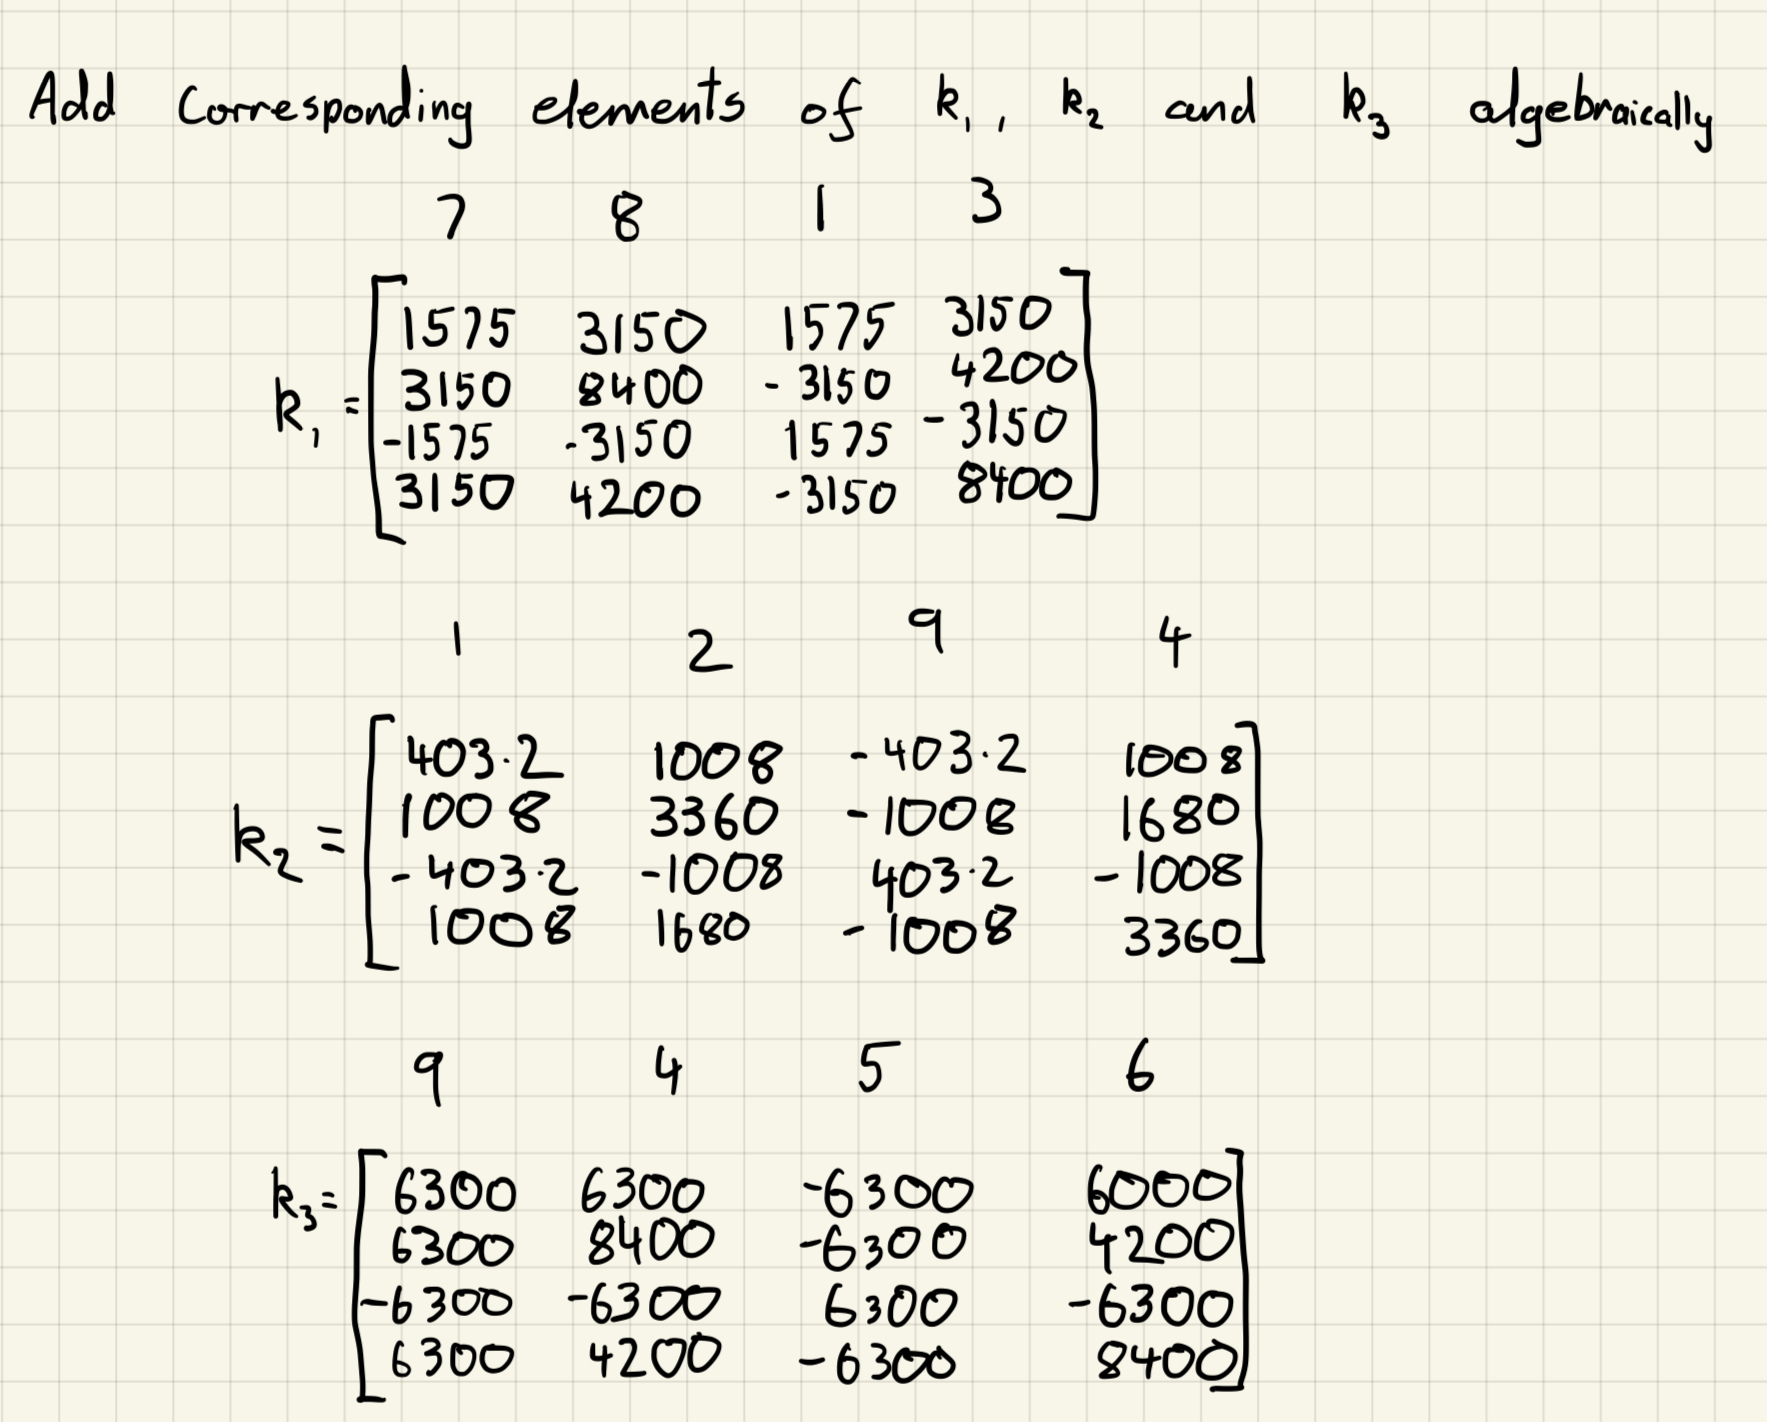 Add Corresponding elements of k₁, k₂ and k₃ algebraically
7 8 1 3
k₁ = [1575 3150 1575 3150
3150 8400 -3150 4200
-1575 -3150 1575 -3150
3150 4200 -3150 8400]
1 2 9 4
k₂ = [403.2 1008 -403.2 1008
1008 3360 -1008 1680
-403.2 -1008 403.2 -1008
1008 1680 -1008 3360]
9 4 5 6
k₃ = [6300 6300 -6300 6000
6300 8400 -6300 4200
-6300 -6300 6300 -6300
6300 4200 -6300 8400]